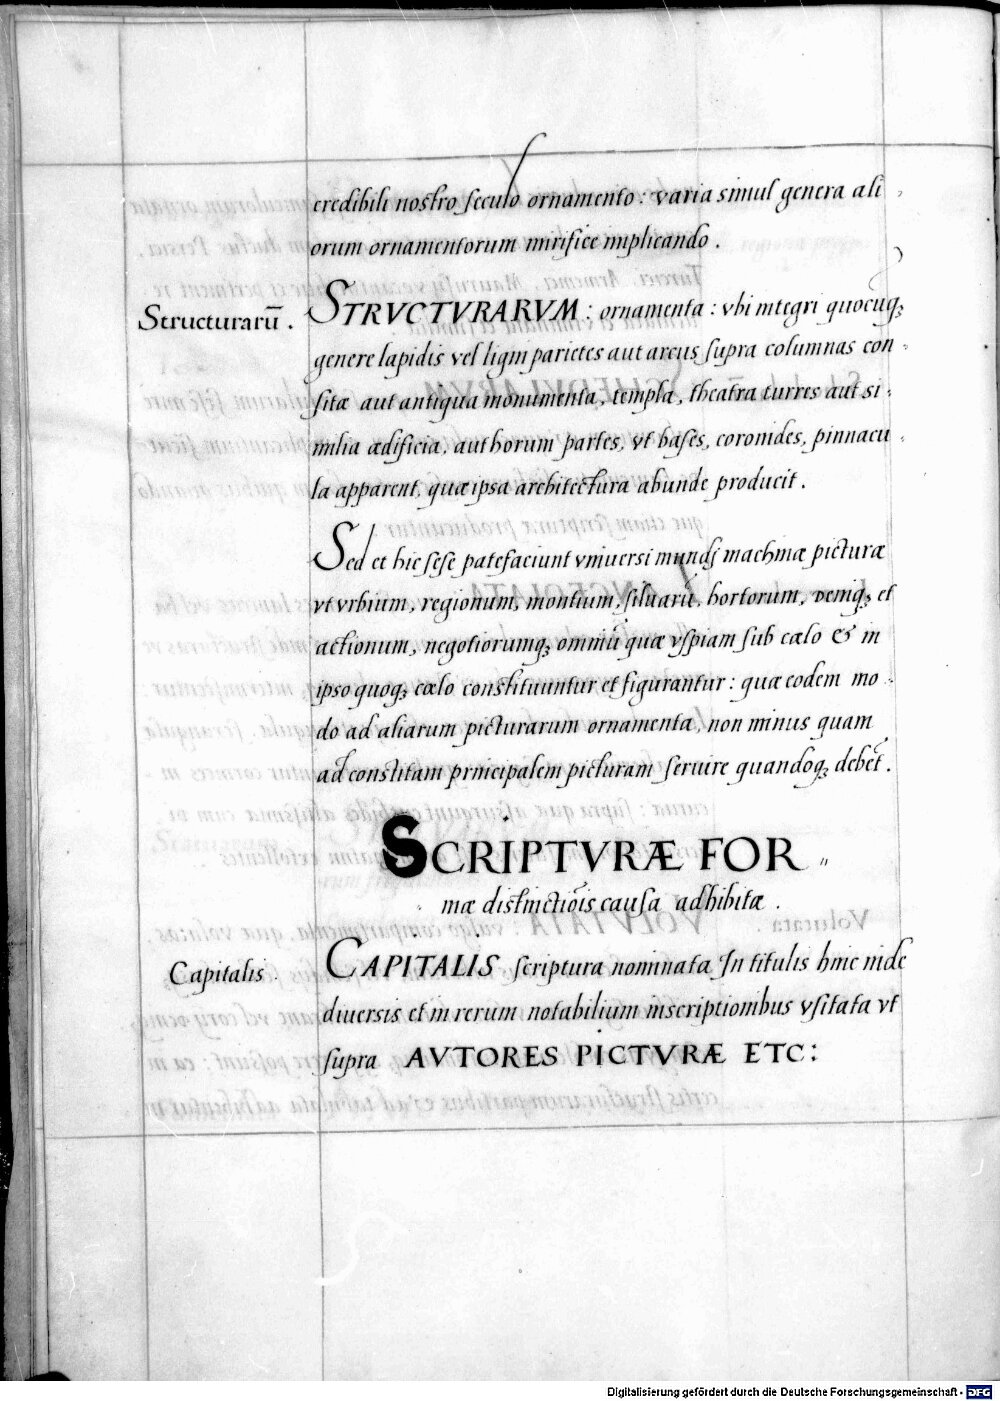 credibili nostro seculo ornamento : varia simul genera ali
orum ornamentorum mirifice implicando .
Structurarū .
STRVCTVRARVM : ornamenta : vbi integri quocūq;
genere lapidis vel ligni parietes aut arcus supra columnas con
sitæ aut antiqua monumenta, templa, theatra turres aut si
milia ædificia, aut horum partes, vt bases, coronides, pinnacu
la apparent, quæ ipsa architectura abunde producit .
Sed et hic sese patefaciunt vniuersi mundj machinæ picturæ
vt vrbium, regionum, montium, siluarū, hortorum, deniq; et
actionum, negotiorumq; omniū quæ vspiam sub cœlo & in
ipso quoq; cœlo constituuntur et figurantur : quæ eodem mo
do ad aliarum picturarum ornamenta, non minus quam
ad constitam principalem picturam seruire quandoq; debēt .
SCRIPTVRÆ FOR „
mæ distinctiōis causa adhibitæ .
Capitalis .
CAPITALIS scriptura nominata In titulis hinc inde
diuersis et in rerum notabilium inscriptionibus vsitata vt
supra AVTORES PICTVRÆ ETC :
Digitalisierung gefördert durch die Deutsche Forschungsgemeinschaft - DFG